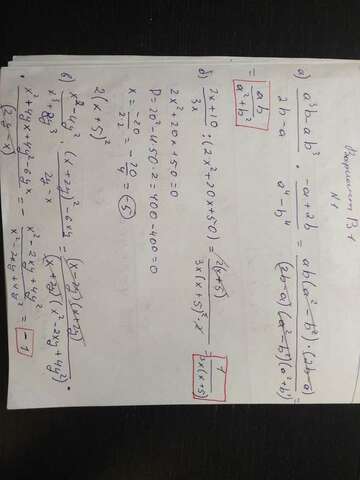 Вариант В+
N1
а) a³b-ab³/2b-a · -a+2b/a⁴-b⁴ = ab(a²-b²)·(2b-a)/(2b-a)(a²-b²)(a²+b²) =
= ab/a²+b²
б) 2x+10/3x : (2x²+20x+50) = 2(x+5)/3x(x+5)²·2 = 1/3x(x+5)
2x²+20x+50=0
D=20²-4·50·2=400-400=0
x = -20/2·2 = -20/4 = -5
2(x+5)²
в) x²-4y²/x³+8y³ · (x+2y)²-6xy/2y-x = (x-2y)(x+2y)/(x+2y)(x²-2xy+4y²) ·
· x²+4yx+4y²-6yx/(2y-x) = - x²-2xy+4y²/x²-2xy+4y² = -1